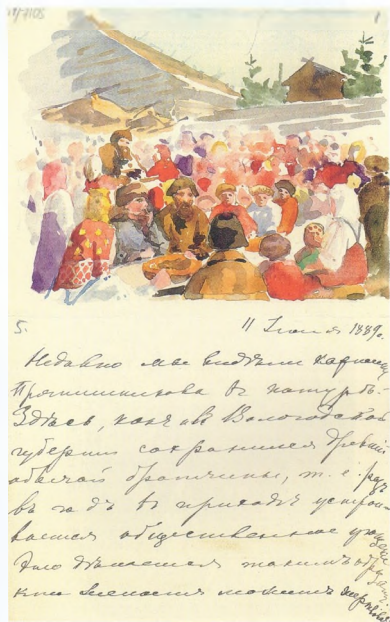 5.
11 Іюля 1889г.
Недавно мы видѣли картину
Прянишникова въ натурѣ.
Здѣсь, какъ и въ Вологодской
губерніи сохранился древній
обычай братчины, т. е. разъ
въ годъ въ приходѣ устраи-
вается общественное угощеніе
Это дѣлается такимъ образомъ